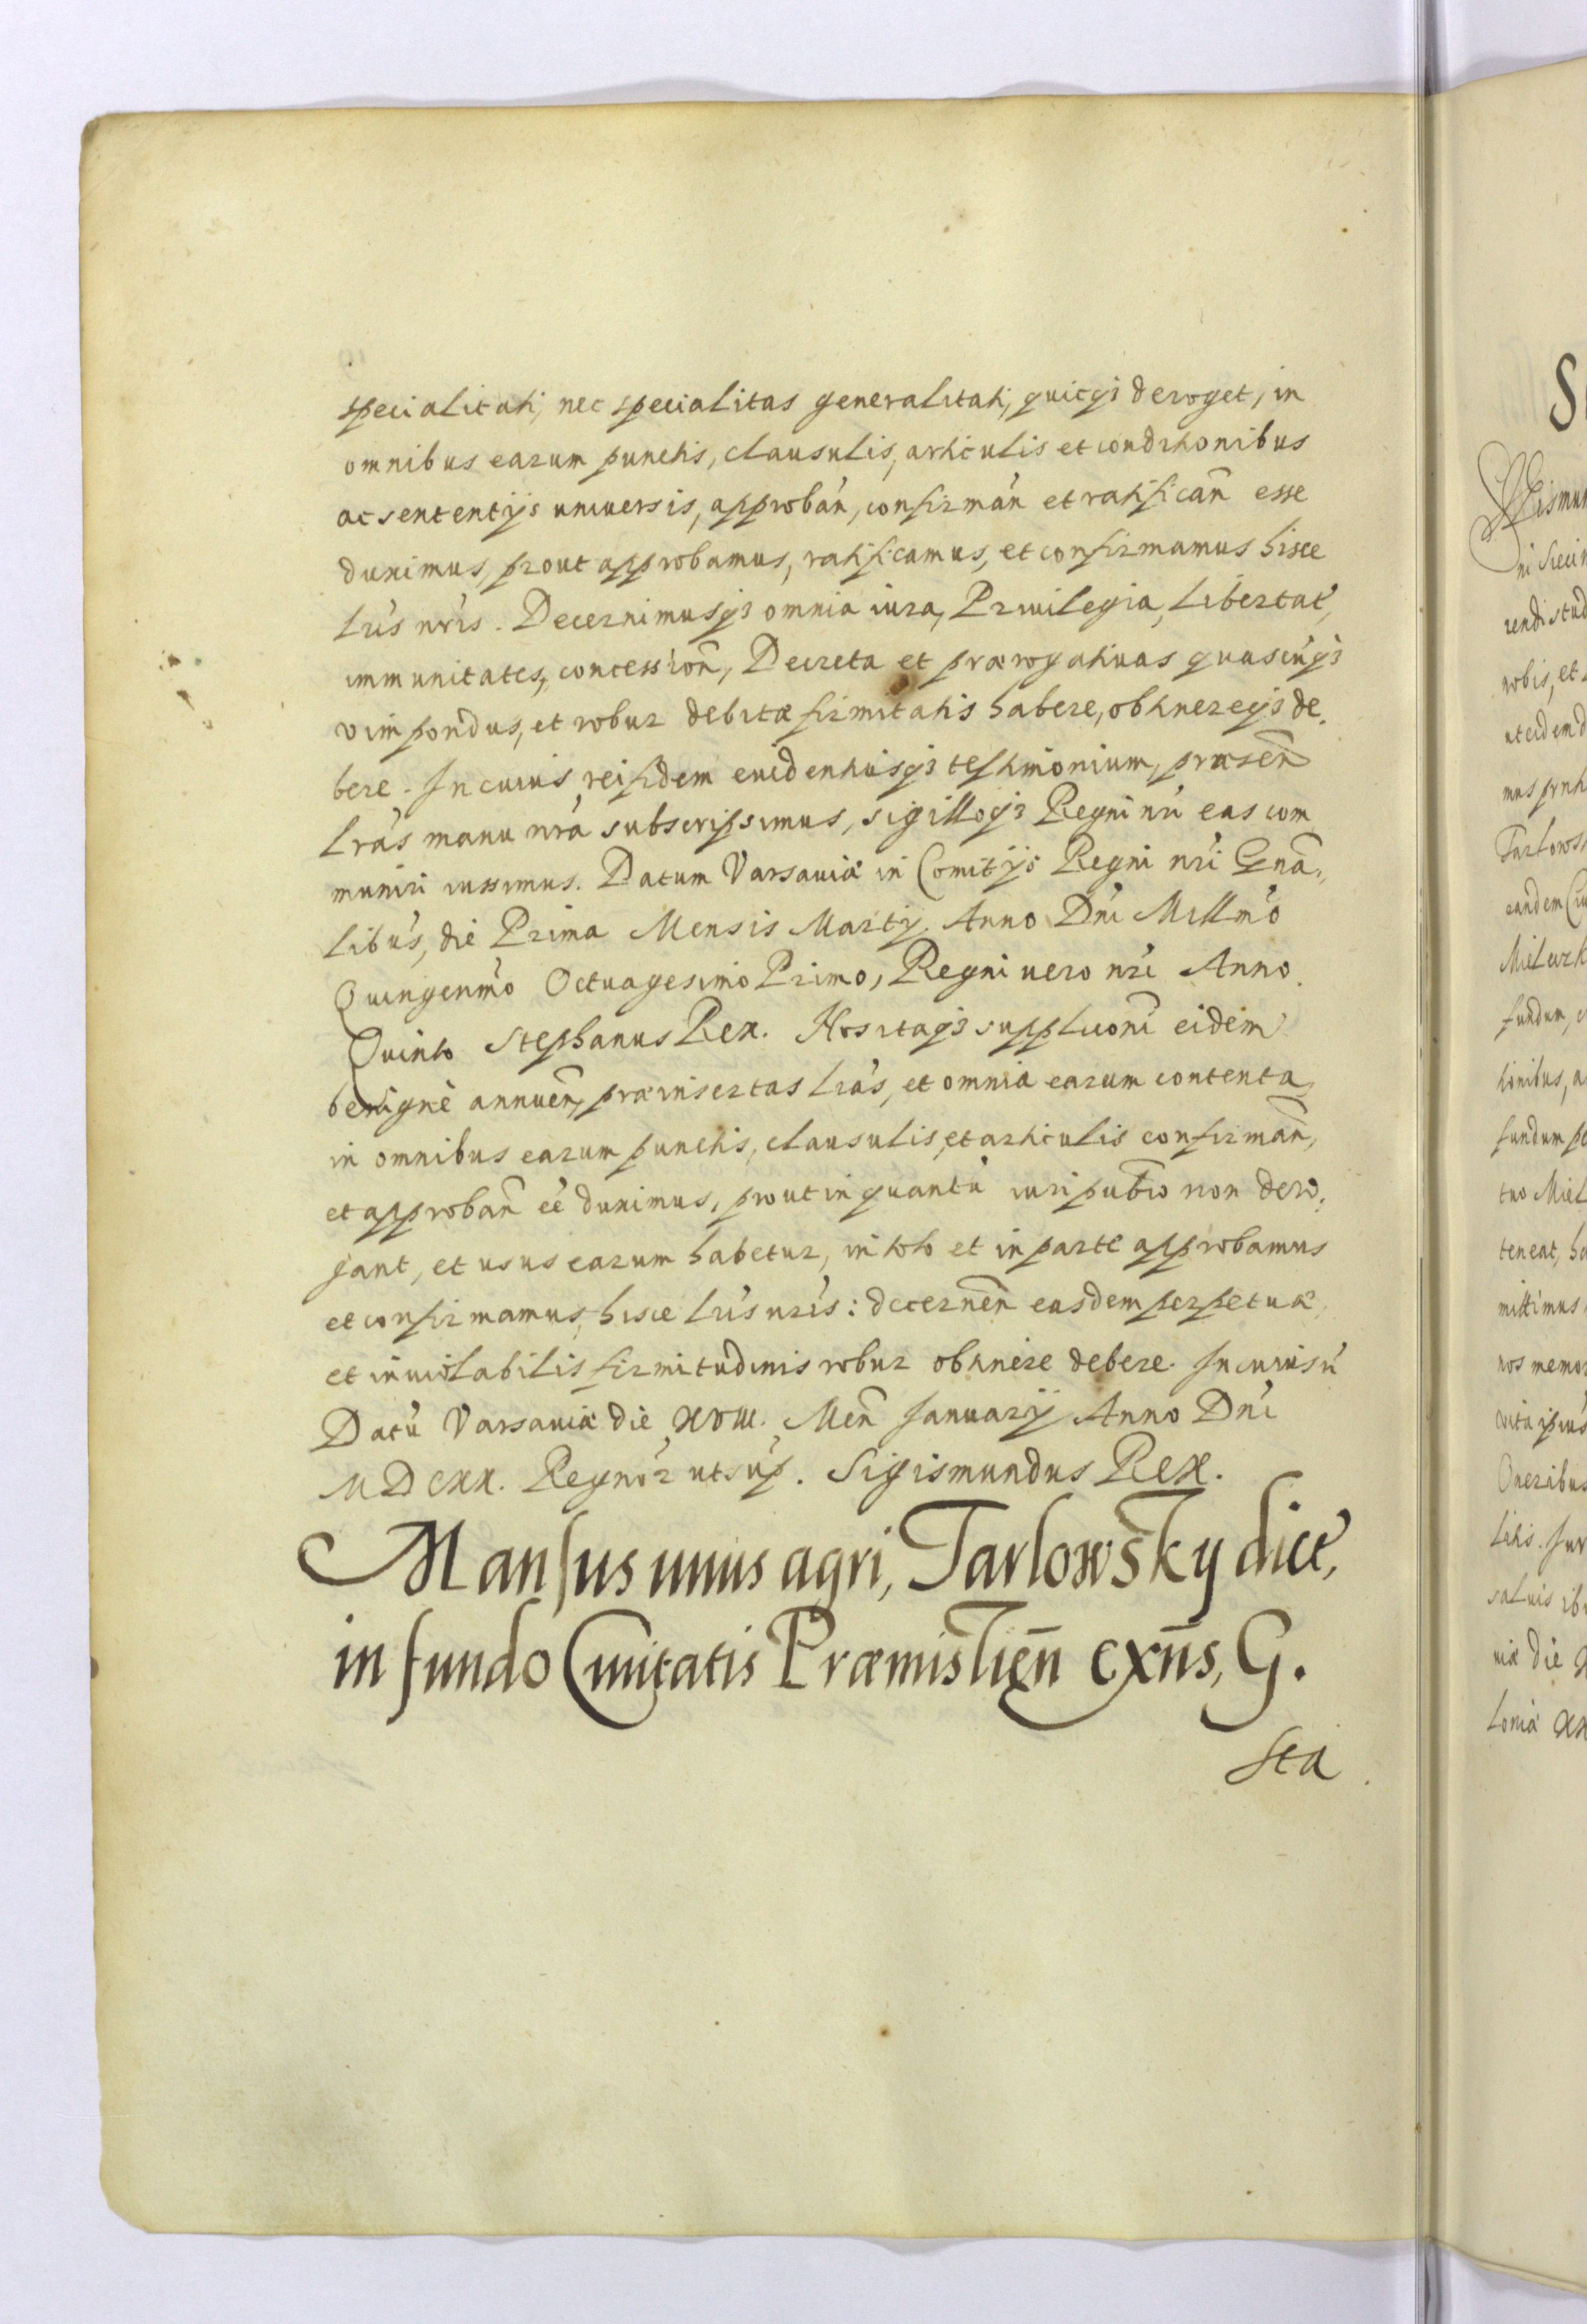 specialitati, nec specialitas generalitati, quicq3 deroget, in
omnibus earum punctis, clausulis, articulis et conditionibus
ac sententijs uniuersis, approbañ, confirmañ et ratificañ esse
duximus, prout approbamus, ratificamus, et confirmamus hisce
Lris nris. Decernimusq3 omnia iura, Priuilegia, Libertat,
immunitates, concession̄, Decreta et prærogatiuas quascunq3
vim pondus, et robur debitæ firmitatis habere, obtinereq3 de,
bere. In cuius rei fidem euidentiusq3 testimonium, præsen̄
Lras manu nra subscripsimus, sigilloq3 Regni nri eas com
muniri iussimus. Datum Varsauiæ in Comitijs Regni nri Gna,
libus, die Prima Mensis Martij. Anno Dni Millmo
Quingenmo Octuagesimo Primo, Regni uero nri Anno
Quinto Stephanus Rex. Nos itaq3 suppliconi eidem
benigne annuen̄, præinsertas Lras, et omnia earum contenta,
in omnibus earum punctis, clausulis, et articulis confirmañ,
et approbañ ee duximus, prout in quantu iuri publico non dero,
gant, et usus earum habetur, in toto et in parte approbamus
et confirmamus, hisce Lris nris: decernen̄ easdem perpetuæ,
et inuiolabilis firmitudinis robur obtinere debere. In cuius ŕ
Datu Varsauiæ die XVIII. Men̄ Januarij Anno Dni
MDCXX. Regnor ut sup. Sigismundus Rex.
Mansus unus agri, Tarlowsky dict,
in fundo Ciuitatis Præmislien̄ exn̄s, G.
Sta
S
gismun
ni Suecir
rendi stud
nobis, et
ut eidem d
mus prnti
Tarlows
eandem Ciu
fundum, c
tionibus, a
fundum pe
tuo Miel
teneat, ha
mittimus
nos memor
uita ipius
Oneribus
Litis. Jur
saluis ib
uiæ die X
loniæ XX